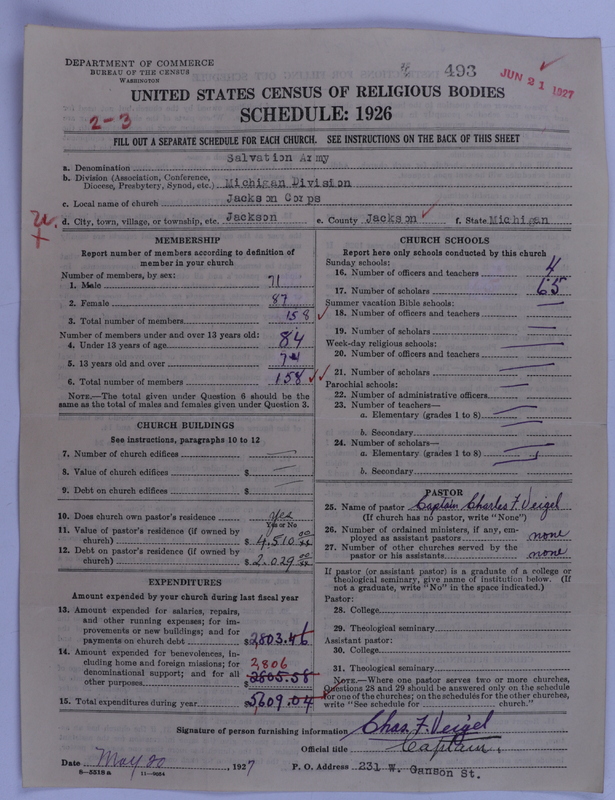 DEPARTMENT OF COMMERCE
BUREAU OF THE CENSUS
WASHINGTON
493
JUN 21 1927
UNITED STATES CENSUS OF RELIGIOUS BODIES
SCHEDULE: 1926
2-3
FILL OUT A SEPARATE SCHEDULE FOR EACH CHURCH. SEE INSTRUCTIONS ON THE BACK OF THIS SHEET
a. Denomination Salvation Army
b. Division (Association, Conference, Diocese, Presbytery, Synod, etc.) Michigan Division
c. Local name of church Jackson Corps
d. City, town, village, or township, etc. Jackson e. County Jackson f. State Michigan
MEMBERSHIP
Report number of members according to definition of
member in your church
Number of members, by sex:
1. Male 71
2. Female 87
3. Total number of members 158
Number of members under and over 13 years old:
4. Under 13 years of age 84
5. 13 years old and over 74
6. Total number of members 158
NOTE.—The total given under Question 6 should be the
same as the total of males and females given under Question 3.
CHURCH BUILDINGS
See instructions, paragraphs 10 to 12
7. Number of church edifices —
8. Value of church edifices $ —
9. Debt on church edifices $ —
10. Does church own pastor's residence Yes
Yes or No
11. Value of pastor's residence (if owned by
church) $ 4,510 00/xx
12. Debt on pastor's residence (if owned by
church) $ 2,029 00/xx
EXPENDITURES
Amount expended by your church during last fiscal year
13. Amount expended for salaries, repairs,
and other running expenses; for im-
provements or new buildings; and for
payments on church debt $ 2,803.46
14. Amount expended for benevolences, in-
cluding home and foreign missions; for
denominational support; and for all
other purposes $ 2,806 2805.58
15. Total expenditures during year $ 5609.04
CHURCH SCHOOLS
Report here only schools conducted by this church
Sunday schools:
16. Number of officers and teachers 4
17. Number of scholars 65
Summer vacation Bible schools: —
18. Number of officers and teachers
19. Number of scholars —
Week-day religious schools: —
20. Number of officers and teachers
21. Number of scholars —
Parochial schools: —
22. Number of administrative officers
23. Number of teachers—
a. Elementary (grades 1 to 8) —
b. Secondary —
24. Number of scholars—
a. Elementary (grades 1 to 8) —
b. Secondary
PASTOR
25. Name of pastor Captain Charles F. Veigel
(If church has no pastor, write "None")
26. Number of ordained ministers, if any, em-
ployed as assistant pastors none
27. Number of other churches served by the
pastor or his assistants none
If pastor (or assistant pastor) is a graduate of a college or
theological seminary, give name of institution below. (If
not a graduate, write "No" in the space indicated.)
Pastor:
28. College
29. Theological seminary
Assistant pastor:
30. College
31. Theological seminary
NOTE.—Where one pastor serves two or more churches,
Questions 28 and 29 should be answered only on the schedule
for one of the churches; on the schedules for the other churches,
write "See schedule for church."
Signature of person furnishing information Chas. F. Veigel
Official title Captain.
Date May 20, 1927 P. O. Address 231 W. Ganson St.
8-5518a 11-9054